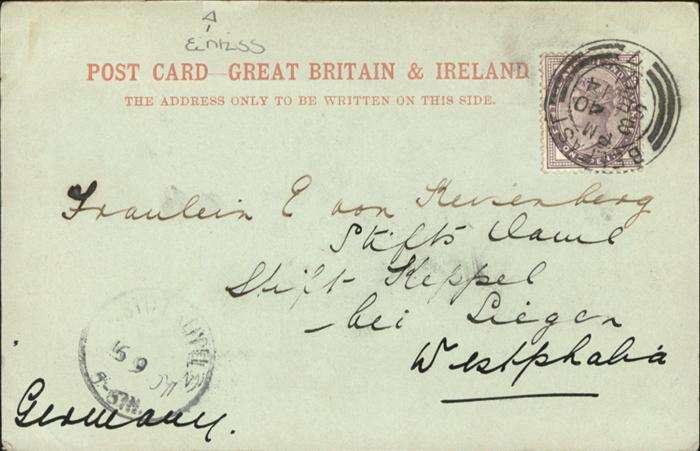 POST CARD GREAT BRITAIN & IRELAND
THE ADDRESS ONLY TO BE WRITTEN ON THIS SIDE.
BELFAST
Fraulein E von
Stifts Dame
Stift Keppel
bei Siegen
Westphalia
Germany.